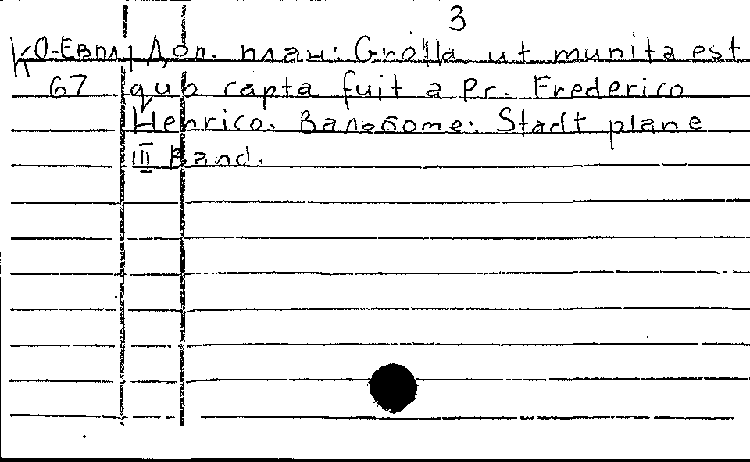 3
КО-Евпл Доп. план: Grolla ut munita est
67 quo capta fuit a Pr. Frederico
Henrico. Заглавие: Stadt plane
III Band.